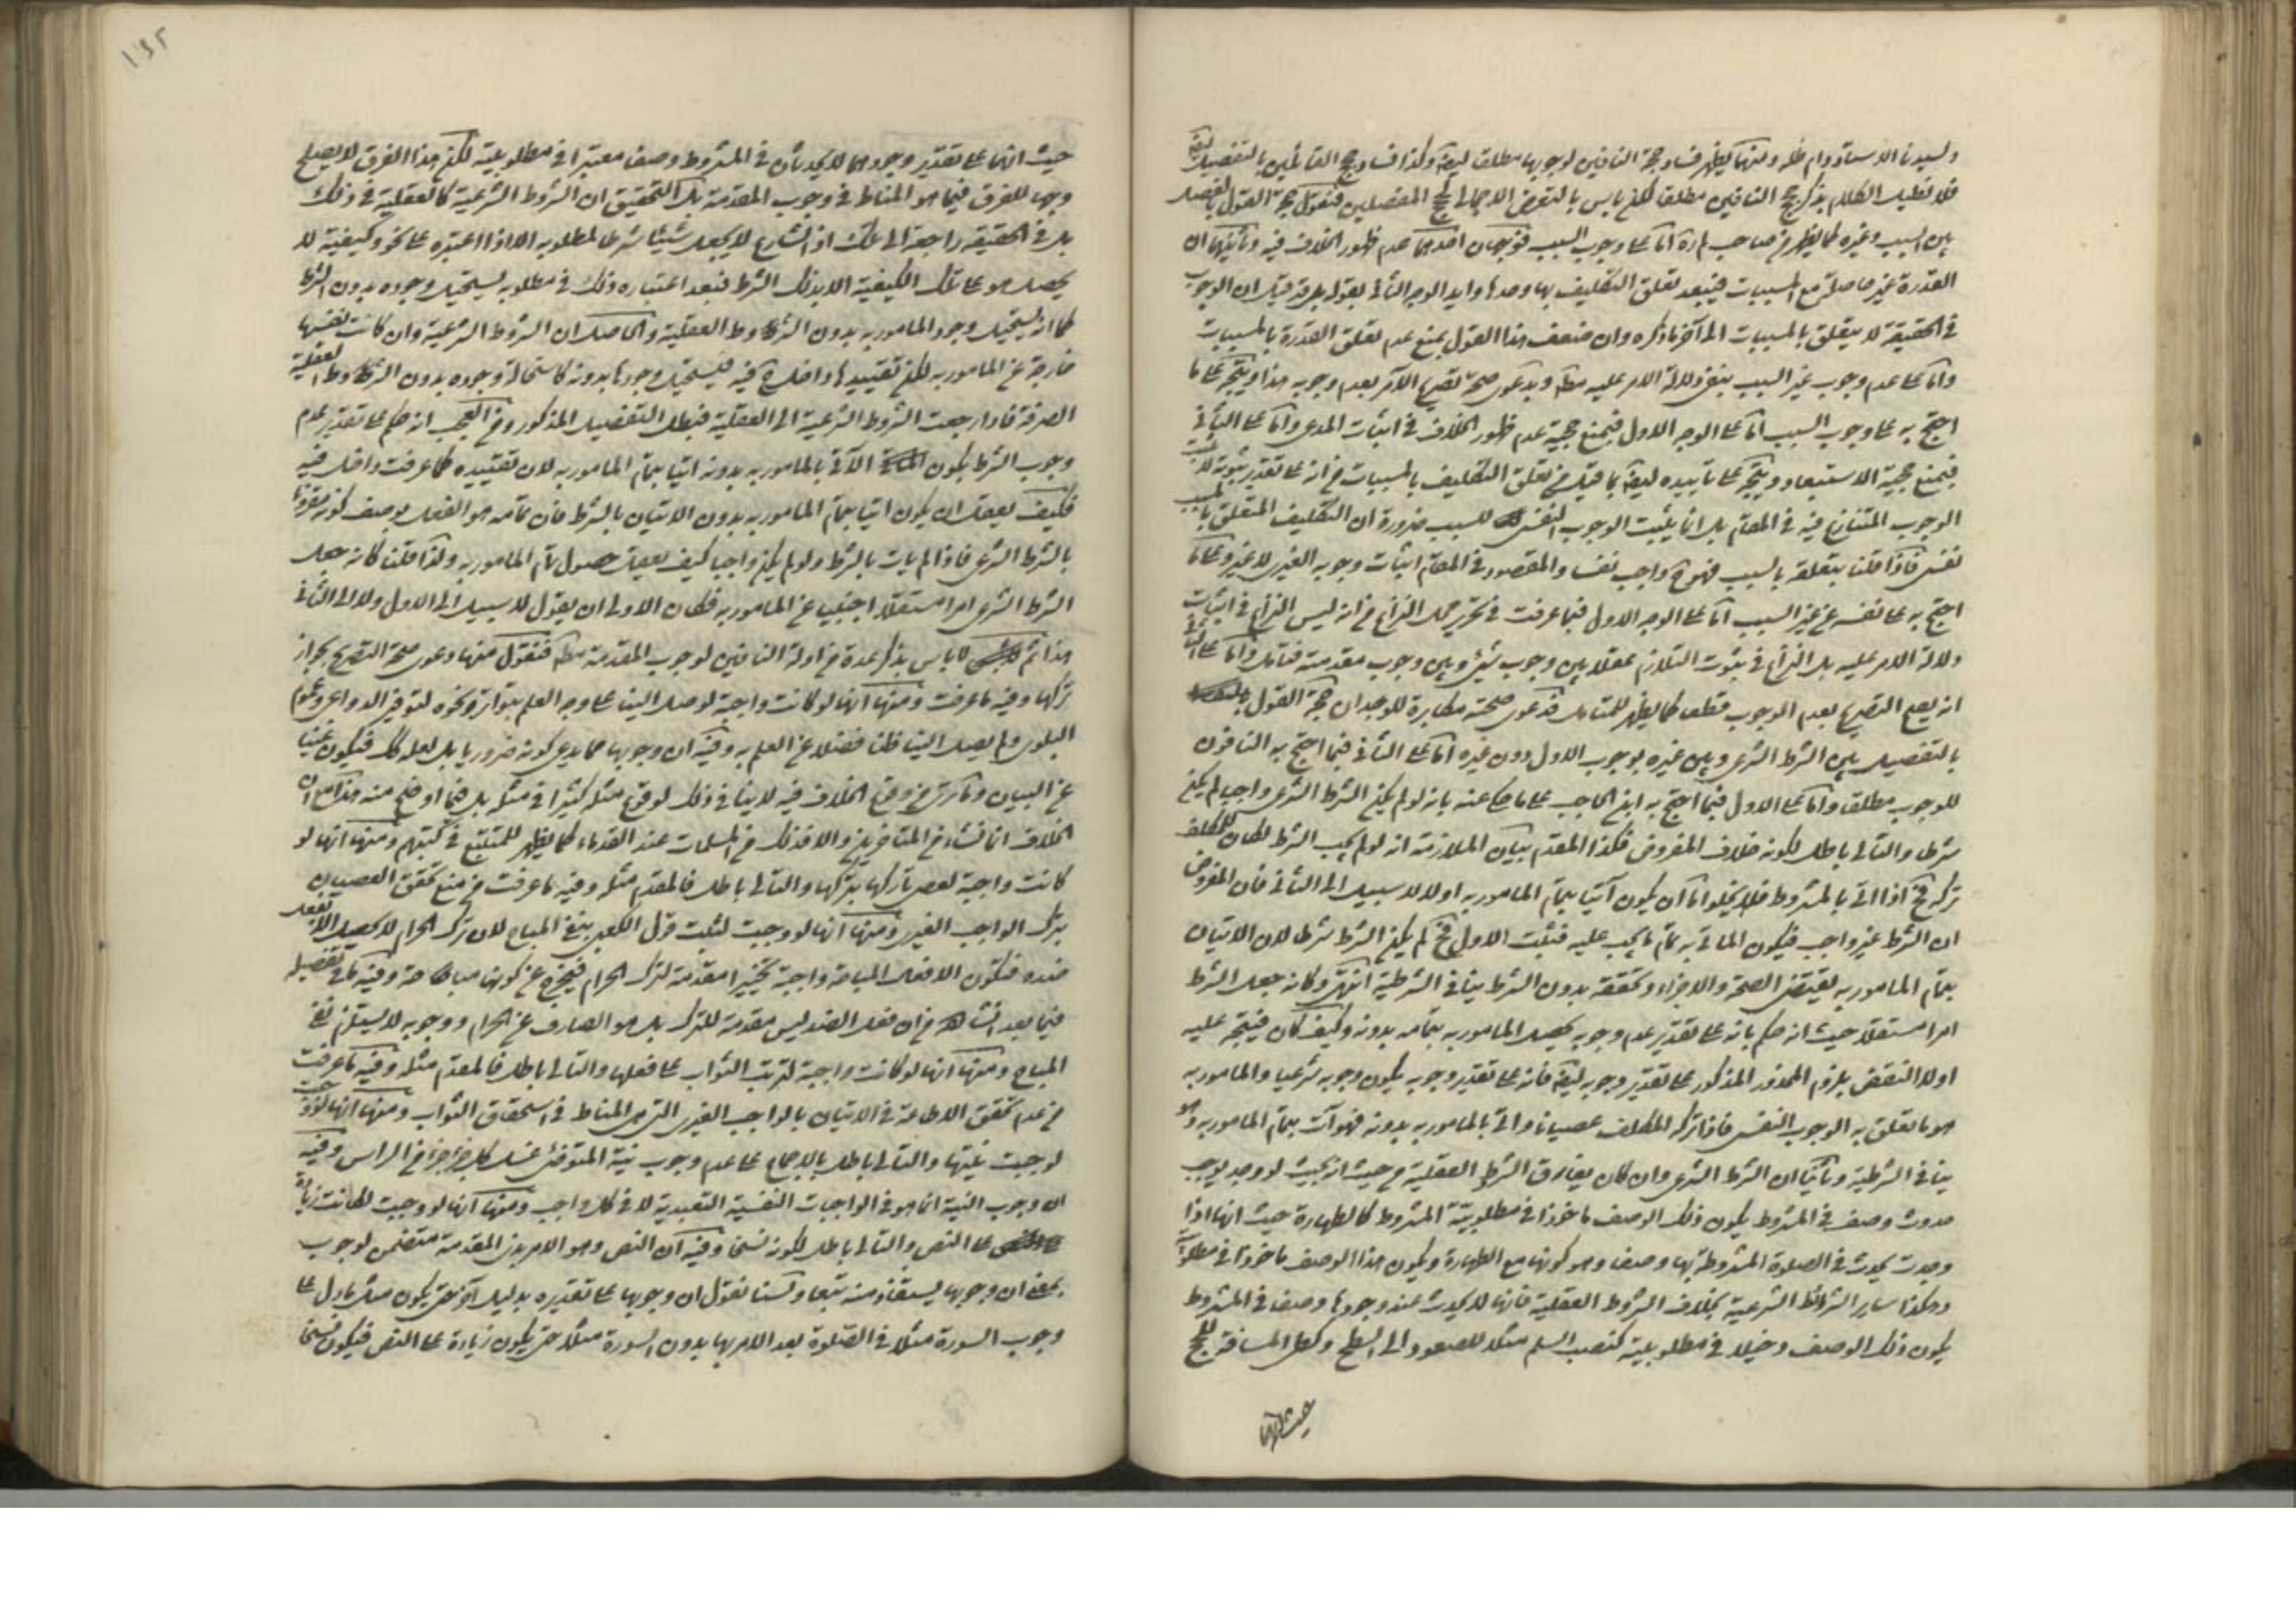 ولسيدنا الاستاد دام ظله ومنها يظهر فساد حجة النافين لوجوبها مطلقا ايضا وكذا فساد حجج القائلين بالتفصيل ايضا
فلا نطيل الكلام بذكر حجج النافين مطلقا لكن لا باس بالتعرض الاجمالي لحجج المفصلين فنقول حجة القول بالتفصيل
بين السبب وغيره كما يظهر من صاحب لم اما على وجوب السبب فوجهان احدهما عدم ظهور الخلاف فيه وثانيهما ان
القدرة غير حاصلة مع المسببات فيبعد تعلق التكليف بها وحدها وايد الوجه الثاني بقوله بل قد قيل ان الوجوب
في الحقيقة لا يتعلق بالمسببات الى آخر ما ذكره وان ضعف هذا القول بمنع عدم تعلق القدرة بالمسببات
واما على عدم وجوب غير السبب بنفي دلالة الامر عليه مط وبدعوى صحة تصريح الآمر بعدم وجوبه هذا ويتجه على ما
احتج به على وجوب السبب اما على الوجه الاول فبمنع حجية عدم ظهور الخلاف في اثبات المدعى واما على الثاني
فبمنع حجية الاستبعاد ويتجه على تاييده ايضا بما قيل من تعلق التكليف بالمسببات من انه على تقدير ثبوته لا يثبت
الوجوب المتنازع فيه في المقام بل انما يثبت الوجوب النفسي للسبب ضرورة ان التكليف المتعلق بالمسبب
نفسي فاذا قلنا بتعلقه بالسبب فهو ح واجب نفسا والمقصود في المقام اثبات وجوبه الغيري لا غير وعلى ما
احتج به على نفسه عن غير السبب اما على الوجه الاول فبما عرفت في تحرير محل النزاع من انه ليس النزاع في اثبات
دلالة الامر عليه بل النزاع في ثبوت التلازم عقلا بين وجوب شيء وبين وجوب مقدمته فتامل واما على الثاني
انه يقبح التصريح بعدم الوجوب قطعا كما يظهر للمتامل فدعوى صحته مكابرة للوجدان حجة القول
بالتفصيل بين الشرط الشرعي وبين غيره بوجوب الاول دون غيره اما على الثاني فبما احتج به النافون
للوجوب مطلقا واما على الاول فبما احتج به ابن الحاجب على ما حكي عنه بانه لو لم يكن الشرط الشرعي واجبا لم يكن
شرطا والتالي باطل لكونه خلاف المفروض فكذا المقدم بيان الملازمة انه لو لم يجب الشرط لكان للمكلف
تركه فح اذا اتى بالمشروط فلا يخلو اما ان يكون آتيا بتمام المامور به اولا لا سبيل الى الثاني فان المفروض
ان الشرط غير واجب فيكون الماتي به تمام ما يجب عليه فيثبت الاول فح لم يكن الشرط شرطا لان الاتيان
بتمام المامور به يقتضي الصحة والاجزاء وتحققه بدون الشرط ينافي الشرطية انتهى وكانه جعل الشرط
امرا مستقلا حيث انه حكم بانه على تقدير عدم وجوبه يحصل المامور به بتمامه بدونه وكيف كان فيتجه عليه
اولا النقض بلزوم المحذور المذكور على تقدير وجوبه ايضا فانه على تقدير وجوبه يكون وجوبه شرعيا والمامور به
هو ما تعلق به الوجوب النفسي فاذا تركه المكلف عصيانا واتى بالمامور به بدونه فهو آت بتمام المامور به وهو
ينافي الشرطية وثانيا ان الشرط الشرعي وان كان يفارق الشرط العقلية من حيث انه بحيث لو وجد يوجب
حدوث وصف في المشروط يكون ذلك الوصف ماخوذا في مطلوبية المشروط كالطهارة حيث انها اذا
وجدت يحدث في الصلوة المشروطة بها وصف وهو كونها مع الطهارة ويكون هذا الوصف ماخوذا في مطلوبيته
وهكذا ساير الشرائط الشرعية بخلاف الشروط العقلية فانها لا يحدث عند وجودها وصف في المشروط
يكون ذلك الوصف دخيلا في مطلوبيته كنصب السلم مثلا للصعود الى السطح وكطي المسافة للحج
حيث انهما
١٩٢
حيث انهما على تقدير وجودهما لا يحدثان في المشروط وصفا معتبرا في مطلوبيته لكن هذا الفرق لا يصلح
وجها للفرق فيما هو المناط في وجوب المقدمة بل التحقيق ان الشروط الشرعية كالعقلية في ذلك
بل في الحقيقة راجعة الى تلك اذ الشارع لا يجعل شيئا شرطا لمطلوبه الا اذا اعتبره على نحو وكيفية لا
يحصل هو على تلك الكيفية الا بذلك الشرط فبعد اعتباره ذلك في مطلوبه يستحيل وجوده بدون الشرط
كما انه يستحيل وجود المامور به بدون الشروط العقلية والحاصل ان الشروط الشرعية وان كانت نفسها
خارجة عن المامور به لكن تقييدها داخلة فيه فيستحيل وجوده بدونه كاستحالة وجوده بدون الشروط العقلية
الصرفة فاذا رجعت الشروط الشرعية الى العقلية فبطل التفصيل المذكور ومن العجب انه حكم على تقدير عدم
وجوب الشرط بكون الآتي بالمامور به بدونه آتيا بتمام المامور به لان تقييده كما عرفت داخل فيه
فكيف يعقل ان يكون آتيا بتمام المامور به بدون الاتيان بالشرط فان تمامه هو الفعل بوصف كونه مقرونا
بالشرط الشرعي فاذا لم يات بالشرط ولو لم يكن واجبا كيف يعقل حصول تمام المامور به ولذا قلنا كانه جعل
الشرط الشرعي امرا مستقلا اجنبيا عن المامور به فكان الاولى ان يقول لا سبيل الى الاول ولا الى الثاني
هذا ثم لا باس بذكر عدة من ادلة النافين لوجوب المقدمة مط فنقول منها دعوى صحة التصريح بجواز
تركها وفيه ما عرفت ومنها انها لو كانت واجبة لوصل الينا على وجه العلم بتواتر ونحوه لتوفر الدواعي وعموم
البلوى ولم يصل الينا ظنا فضلا عن العلم به وفيه ان وجوبها مما يدعى كونه ضروريا بل لعله كك فيكون غنيا
عن البيان وما ترى من وقوع الخلاف فيه لا ينافي ذلك لوقوع مثله كثيرا في مثله بل فيما اوضح منه هذا مع ان
الخلاف انما نشاء من المتاخرين والا فذلك من المسلمات عند القدماء كما يظهر للمتتبع في كتبهم ومنها انها لو
كانت واجبة لعصى تاركها بتركها والتالي باطل فالمقدم مثله وفيه ما عرفت من منع تحقق العصيان
بترك الواجب الغيري ومنها انها لو وجبت لثبت قول الكعبي بنفي المباح لان ترك الحرام لا يحصل الا بفعل
ضده فتكون الافعال المباحة واجبة تخييرا مقدمة لترك الحرام فيخرج عن كونها مباحة وفيه ما في تفصيله
فيما بعد انشاء الله من ان فعل الضد ليس مقدمة للترك بل هو الصارف عن الحرام ووجوبه لا يستلزم نفي
المباح ومنها انها لو كانت واجبة لترتب الثواب على فعلها والتالي باطل فالمقدم مثله وفيه ما عرفت
من عدم تحقق الاطاعة في الاتيان بالواجب الغيري التي هي المناط في استحقاق الثواب ومنها انها لو وجبت
لوجبت نيتها والتالي باطل بالاجماع على عدم وجوب نية المتوضئ غسل كل جزء جزء من الراس وفيه
ان وجوب النية انما هو في الواجبات النفسية التعبدية لا في كل واجب ومنها انها لو وجبت لكانت زيادة
على النص والتالي باطل لكونه نسخا وفيه ان النص وهو الامر بذي المقدمة متضمن لوجوب
بمعنى ان وجوبها يستفاد منه تبعا ولسنا نقول ان وجوبها على تقديره بدليل آخر حتى يكون مثل ما دل على
وجوب السورة مثلا في الصلوة بعد الامر بها بدون السورة مثلا حتى يكون زيادة على النص فيكون نسخا